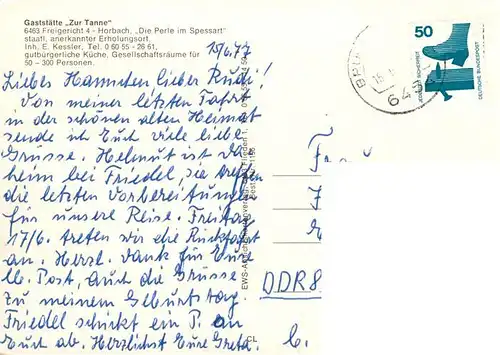 Gaststätte „Zur Tanne"
6463 Freigericht 4 - Horbach, „Die Perle im Spessart"
staatl. anerkannter Erholungsort.
Inh. E. Kessler, Tel. 0 60 55 - 26 61,
gutbürgerliche Küche, Gesellschaftsräume für
50 – 300 Personen.
15/6.77
Liebes Hannchen lieber Rudi!
Von meiner letzten Fahrt
in der schönen alten Heimat
sende ich Euch viele liebe
Grüsse. Helmut ist da-
heim bei Friedel, sie treffen
die letzten Vorbereitungen
für unsere Reise. Freitag
17/6. treten wir die Rückfahrt
an. Herzl. Dank für Eure
lb. Post, auch die Grüsse
zu meinem Geburtstag.
Friedel schickt ein P. an
Euch ab. Herzlichst Eure Greta.
50
DEUTSCHE BUNDESPOST
DDR 8